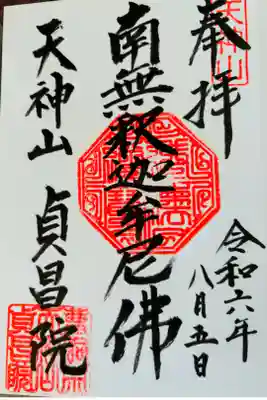 天神山
奉拝
令和六年
八月五日
南無釈迦牟尼佛
天神山 貞昌院